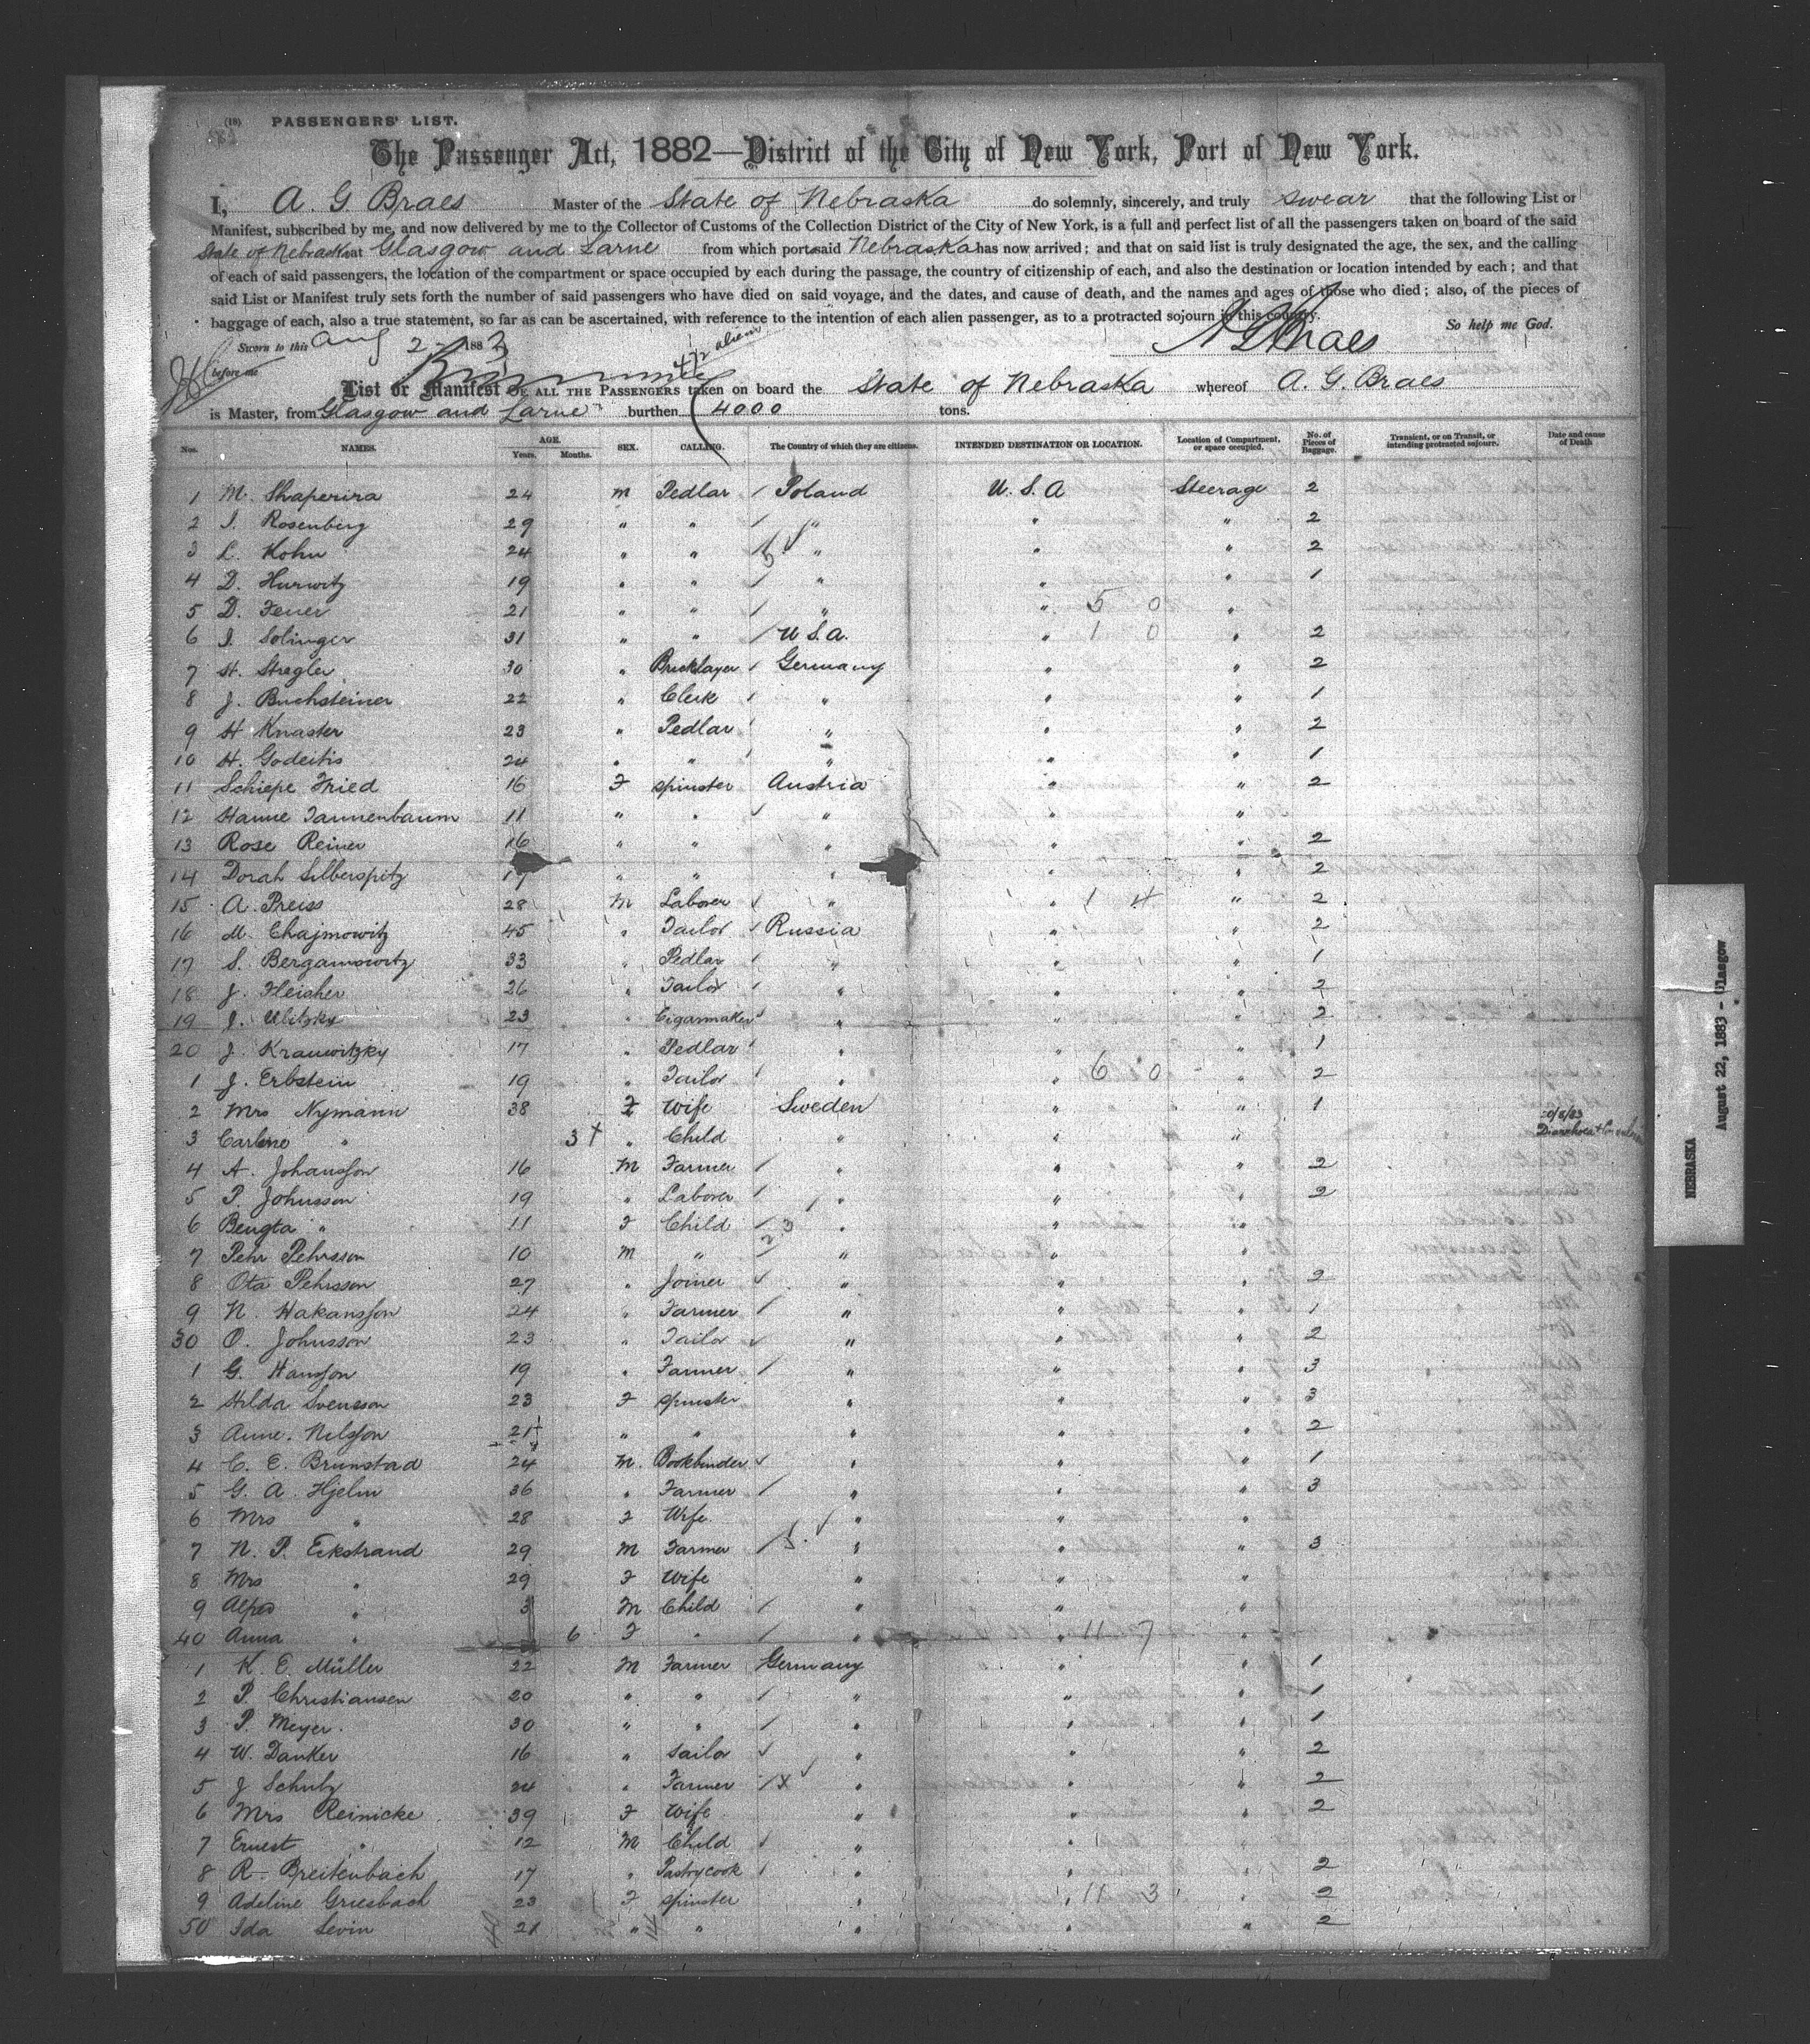 (18) PASSENGERS' LIST.
The Passenger Act, 1882—District of the City of New York, Port of New York.
I, A. G. Braes Master of the State of Nebraska do solemnly, sincerely, and truly swear that the following List or
Manifest, subscribed by me, and now delivered by me to the Collector of Customs of the Collection District of the City of New York, is a full and perfect list of all the passengers taken on board of the said
State of Nebraska at Glasgow and Larne from which port said Nebraska has now arrived; and that on said list is truly designated the age, the sex, and the calling
of each of said passengers, the location of the compartment or space occupied by each during the passage, the country of citizenship of each, and also the destination or location intended by each; and that
said List or Manifest truly sets forth the number of said passengers who have died on said voyage, and the dates, and cause of death, and the names and ages of those who died; also, of the pieces of
baggage of each, also a true statement, so far as can be ascertained, with reference to the intention of each alien passenger, as to a protracted sojourn in this country.
So help me God.
Sworn to this Aug 22 1883 A G Braes
before me
472 alien
List or Manifest OF ALL THE PASSENGERS taken on board the State of Nebraska whereof A. G. Braes
is Master, from Glasgow and Larne burthen 4000 tons.
Nos. NAMES. AGE. Years. Months. SEX. CALLING. The Country of which they are citizens. INTENDED DESTINATION OR LOCATION. Location of Compartment, or space occupied. No. of Pieces of Baggage. Transient, or on Transit, or intending protracted sojourn. Date and cause of Death
1 M. Shaperira 24 m Pedlar / Poland U. S. A Steerage 2
2 I. Rosenberg 29 " " / " " " 2
3 L. Kohn 24 " " / 5 ✓ " " " 2
4 D. Hurwitz 19 " " / " " " 1
5 D. Feuer 21 " " / " " 5 0 "
6 I. Solinger 31 " " / U. S. A. " 1 0 " 2
7 H. Stregler 30 " Bricklayer / Germany " " 2
8 J. Buchsteiner 22 " Clerk / " " " 1
9 H Knaster 23 " Pedlar / " " " 2
10 H. Godeitis 24 " " / " " " 1
11 Schiepe Fried 16 F spinster Austria " " 2
12 Hanne Tannenbaum 11 " " ✓ " " "
13 Rose Reiner 16 " " " " " 2
14 Dorah Silberspitz 17 " " " " " 2
15 A. Preiss 28 M Laborer ✓ " " 1 4 " 2
16 M. Chajmowitz 45 " Tailor / Russia " " 2
17 S. Bergamowitz 33 " Pedlar / " " " 1
18 J. Fleisher 26 " Tailor / " " " 2
19 J. Ulitzky 23 " Cigarmaker / " " " 2
20 J. Krauwitzky 17 " Pedlar / " " " 1
1 J. Erbstein 19 " Tailor / " " 6 0 " 2
2 Mrs Nymann 38 F Wife Sweden " " 1
3 Carlene " 3 † " Child " " "
4 A. Johansson 16 M Farmer / " " " 2
5 P. Johnsson 19 " Laborer / " " " 2
6 Bengta " 11 F Child / 3 " " "
7 Pehr Pehrsson 10 m " / " " "
8 Ota Pehrsson 27 " Joiner ✓ " " " 2
9 N. Hakansson 24 " Farmer / " " " 1
30 O. Johnsson 23 " Tailor ✓ " " " 2
1 G. Hansson 19 " Farmer / " " " 3
2 Hilda Svensson 23 F spinster " " " 3
3 Anne. Nilsson 21 " " " " " 2
4 C. E. Brunstad 24 M. Bookbinder ✓ " " " 1
5 G. A. Hjelm 36 " Farmer / " " " 3
6 Mrs " 28 F Wife " " "
7 N. P. Eckstrand 29 M Farmer / " " " 3
8 Mrs " 29 F Wife " " "
9 Alfred " 3 M Child / " " "
40 Anna " 6 F " / " " 11 7 "
1 K. E. Müller 22 M Farmer Germany " " 1
2 P. Christiansen 20 " " / " " " 1
3 P. Meyer. 30 " " / " " " 1
4 W. Danker 16 " Sailor ✓ " " " 2
5 J Schulz 24 " Farmer / x ✓ " " " 2
6 Mrs Reinicke 39 F Wife " " " 2
7 Ernest " 12 M Child ✓ " " "
8 R. Breitenbach 17 " Pastrycook / " " " 2
9 Adeline Griesbach 23 F spinster " " 11 3 " 2
50 Ida Levin 21 " " " " " 2
NEBRASKA
August 22, 1883 - Glasgow